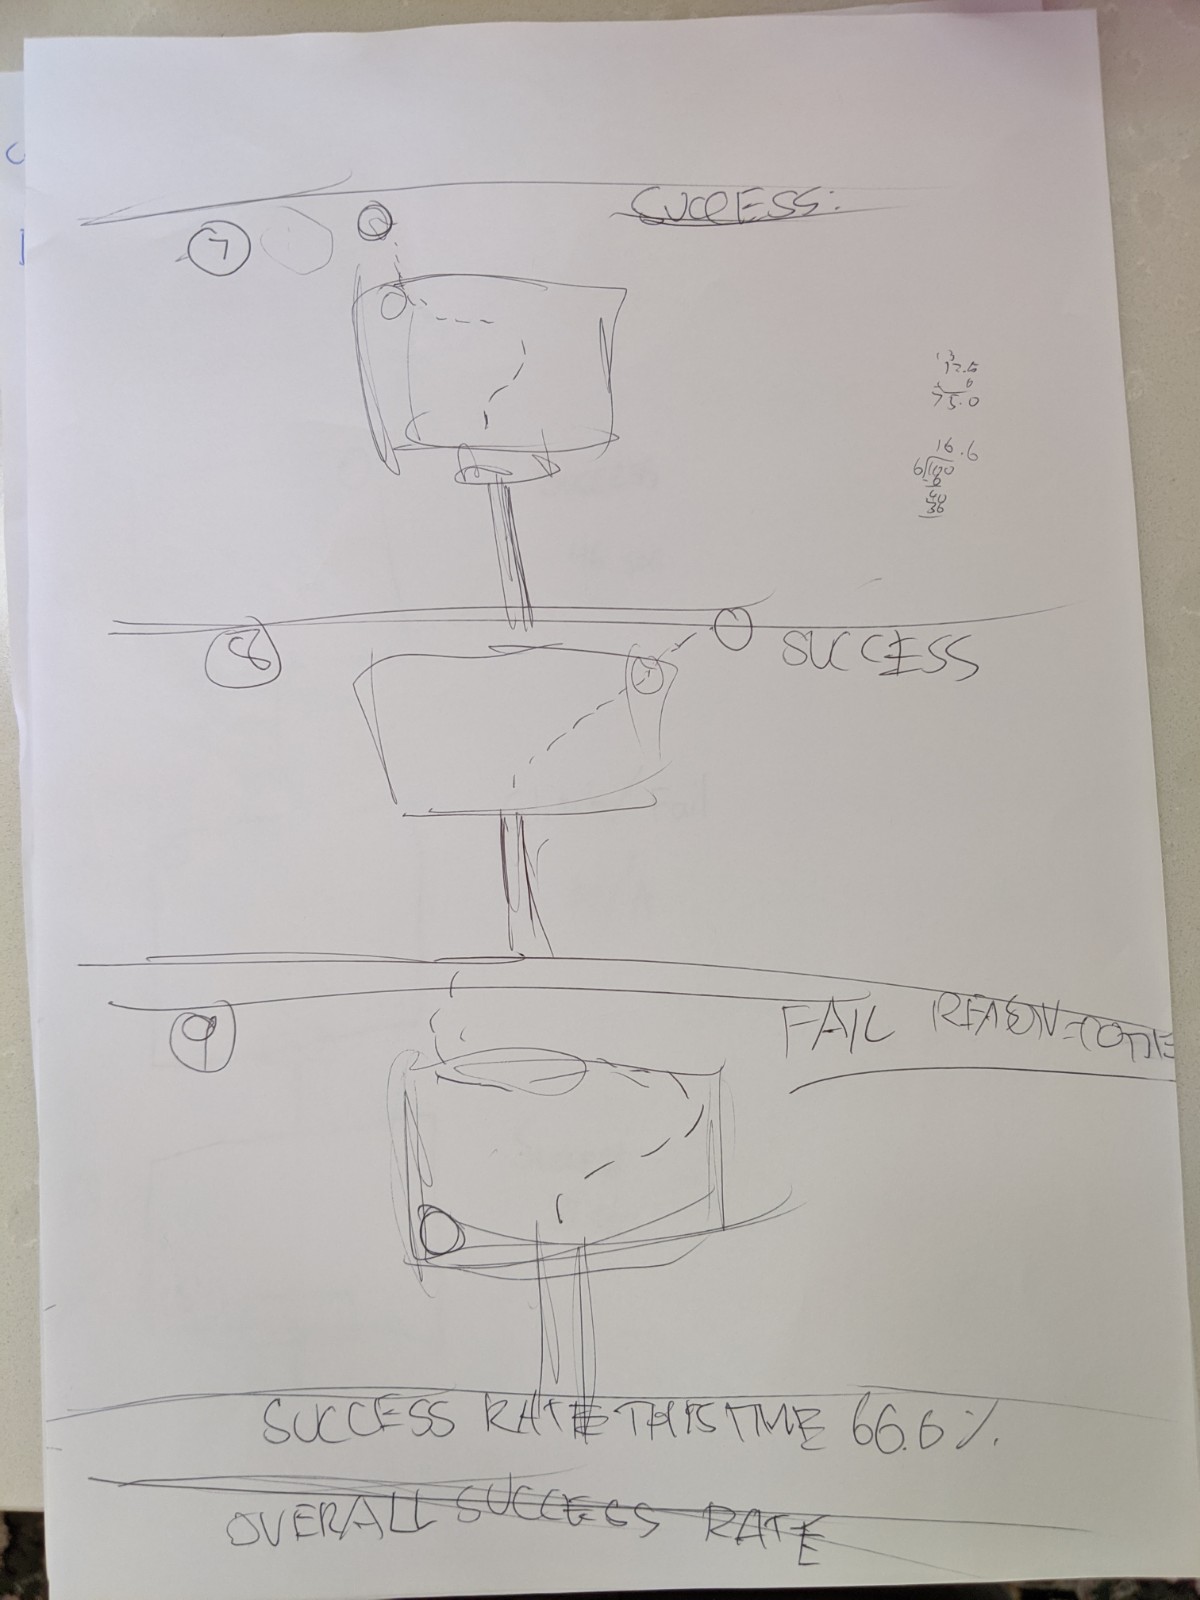 SUCCESS:
7
12.5
6
75.0
16.6
6 100
6
40
36
8
SUCCESS
9
FAIL REASON-CODE
SUCCESS RATE THIS TIME 66.6%
OVERALL SUCCESS RATE